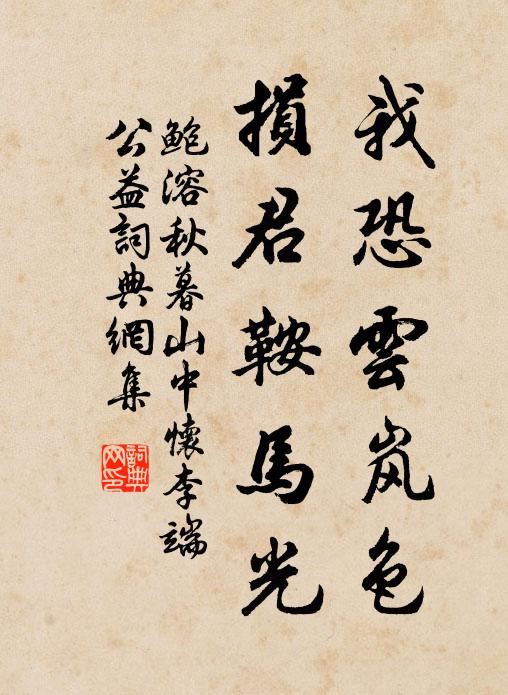 我恐雲岚色
損君鞍馬光
鲍溶秋暮山中懷李端
公益詞典網集
詞典
网印